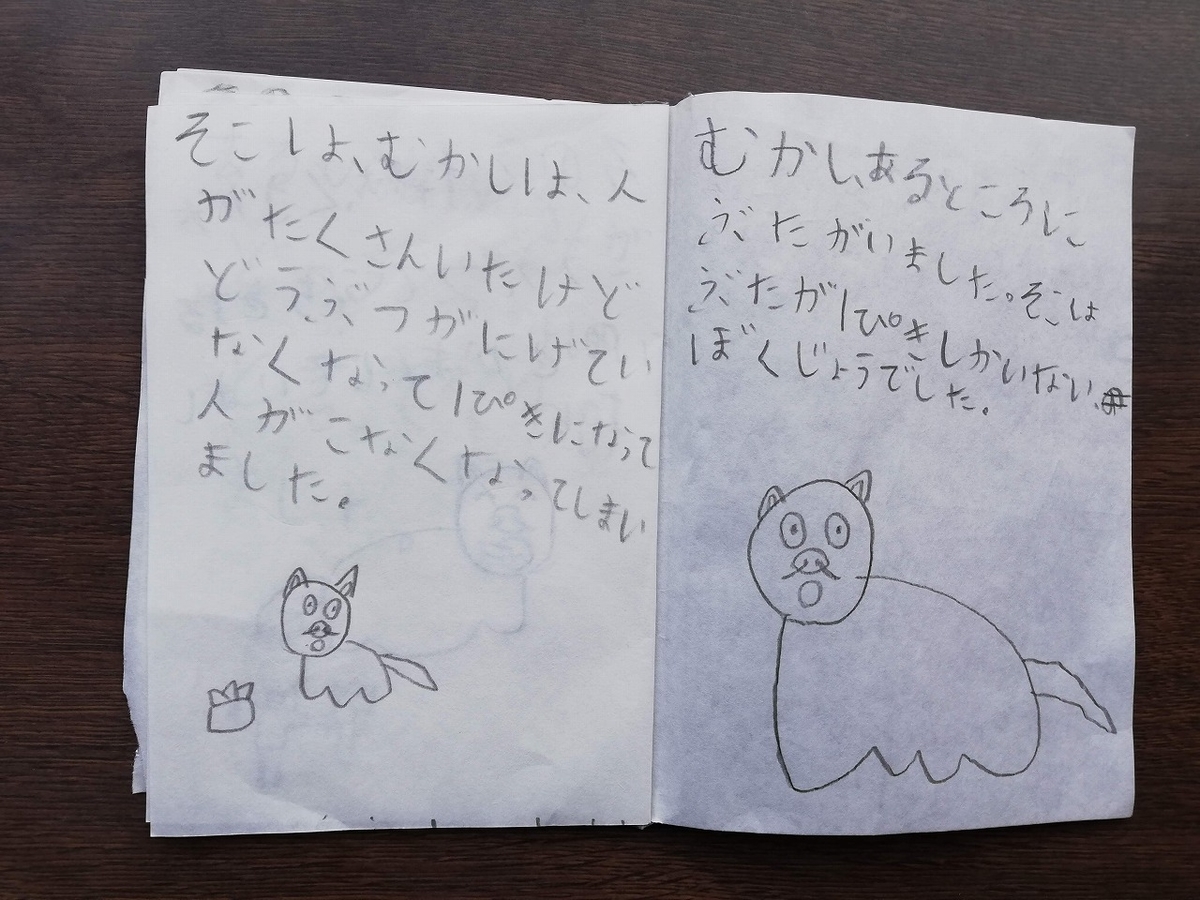 むかし、あるところに
ぶたがいました。そこは
ぶたが1ぴきしかいない、
ぼくじょうでした。
そこは、むかしは、人
がたくさんいたけど
どうぶつがにげてい
なくなって1ぴきになって
人がこなくなってしまい
ました。